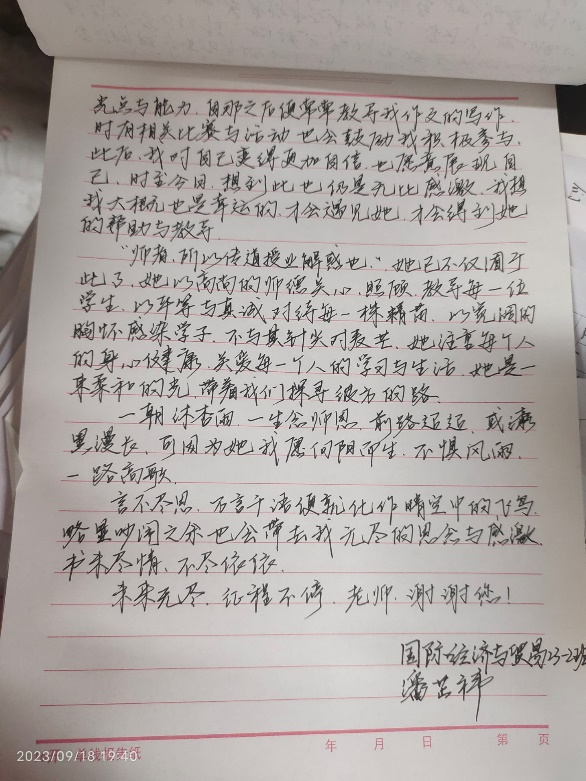 光点与能力，自那之后便常常教导我作文的写作，
时有相关比赛与活动也会鼓励我积极参与，
此后，我对自己变得更加自信，也愿意展现自
己，时至今日，想到此也仍是无比感激，我想
我大概也是幸运的，才会遇见她，才会得到她
的帮助与教导。
“师者，所以传道授业解惑也。”她已不仅囿于
此了，她以高尚的师德关心、照顾、教导每一位
学生，以平等与真诚对待每一株精苗，以宽阔的
胸怀感染学子，不与其针尖对麦芒，她注重每个人
的身心健康，关爱每一个人的学习与生活，她是一
束柔和的光，带着我们探寻彼方的路。
一朝沐杏雨，一生念师恩，前路迢迢，或漆
黑漫长，可因为她我愿向阳而生，不惧风雨，
一路高歌。
言不尽思，万言千语便就化作晴空中的飞鸟，
略显吵闹之余也会带去我无尽的思念与感激，
书未尽情，不尽依依。
未来无尽，征程不停，老师，谢谢您！
国际经济与贸易23-2班
潘芸祎
年 月 日 第 页
2023/09/18 19:40